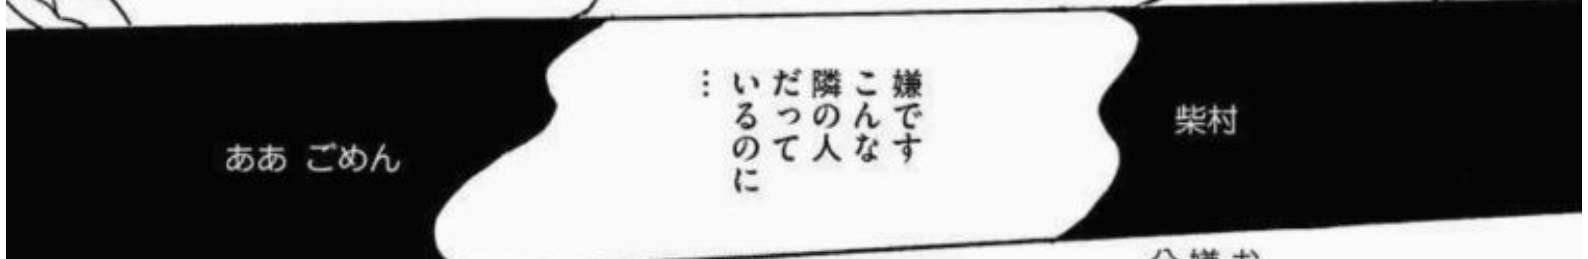 柴村
嫌です
こんな
隣の人
だって
いるのに
…
ああ ごめん